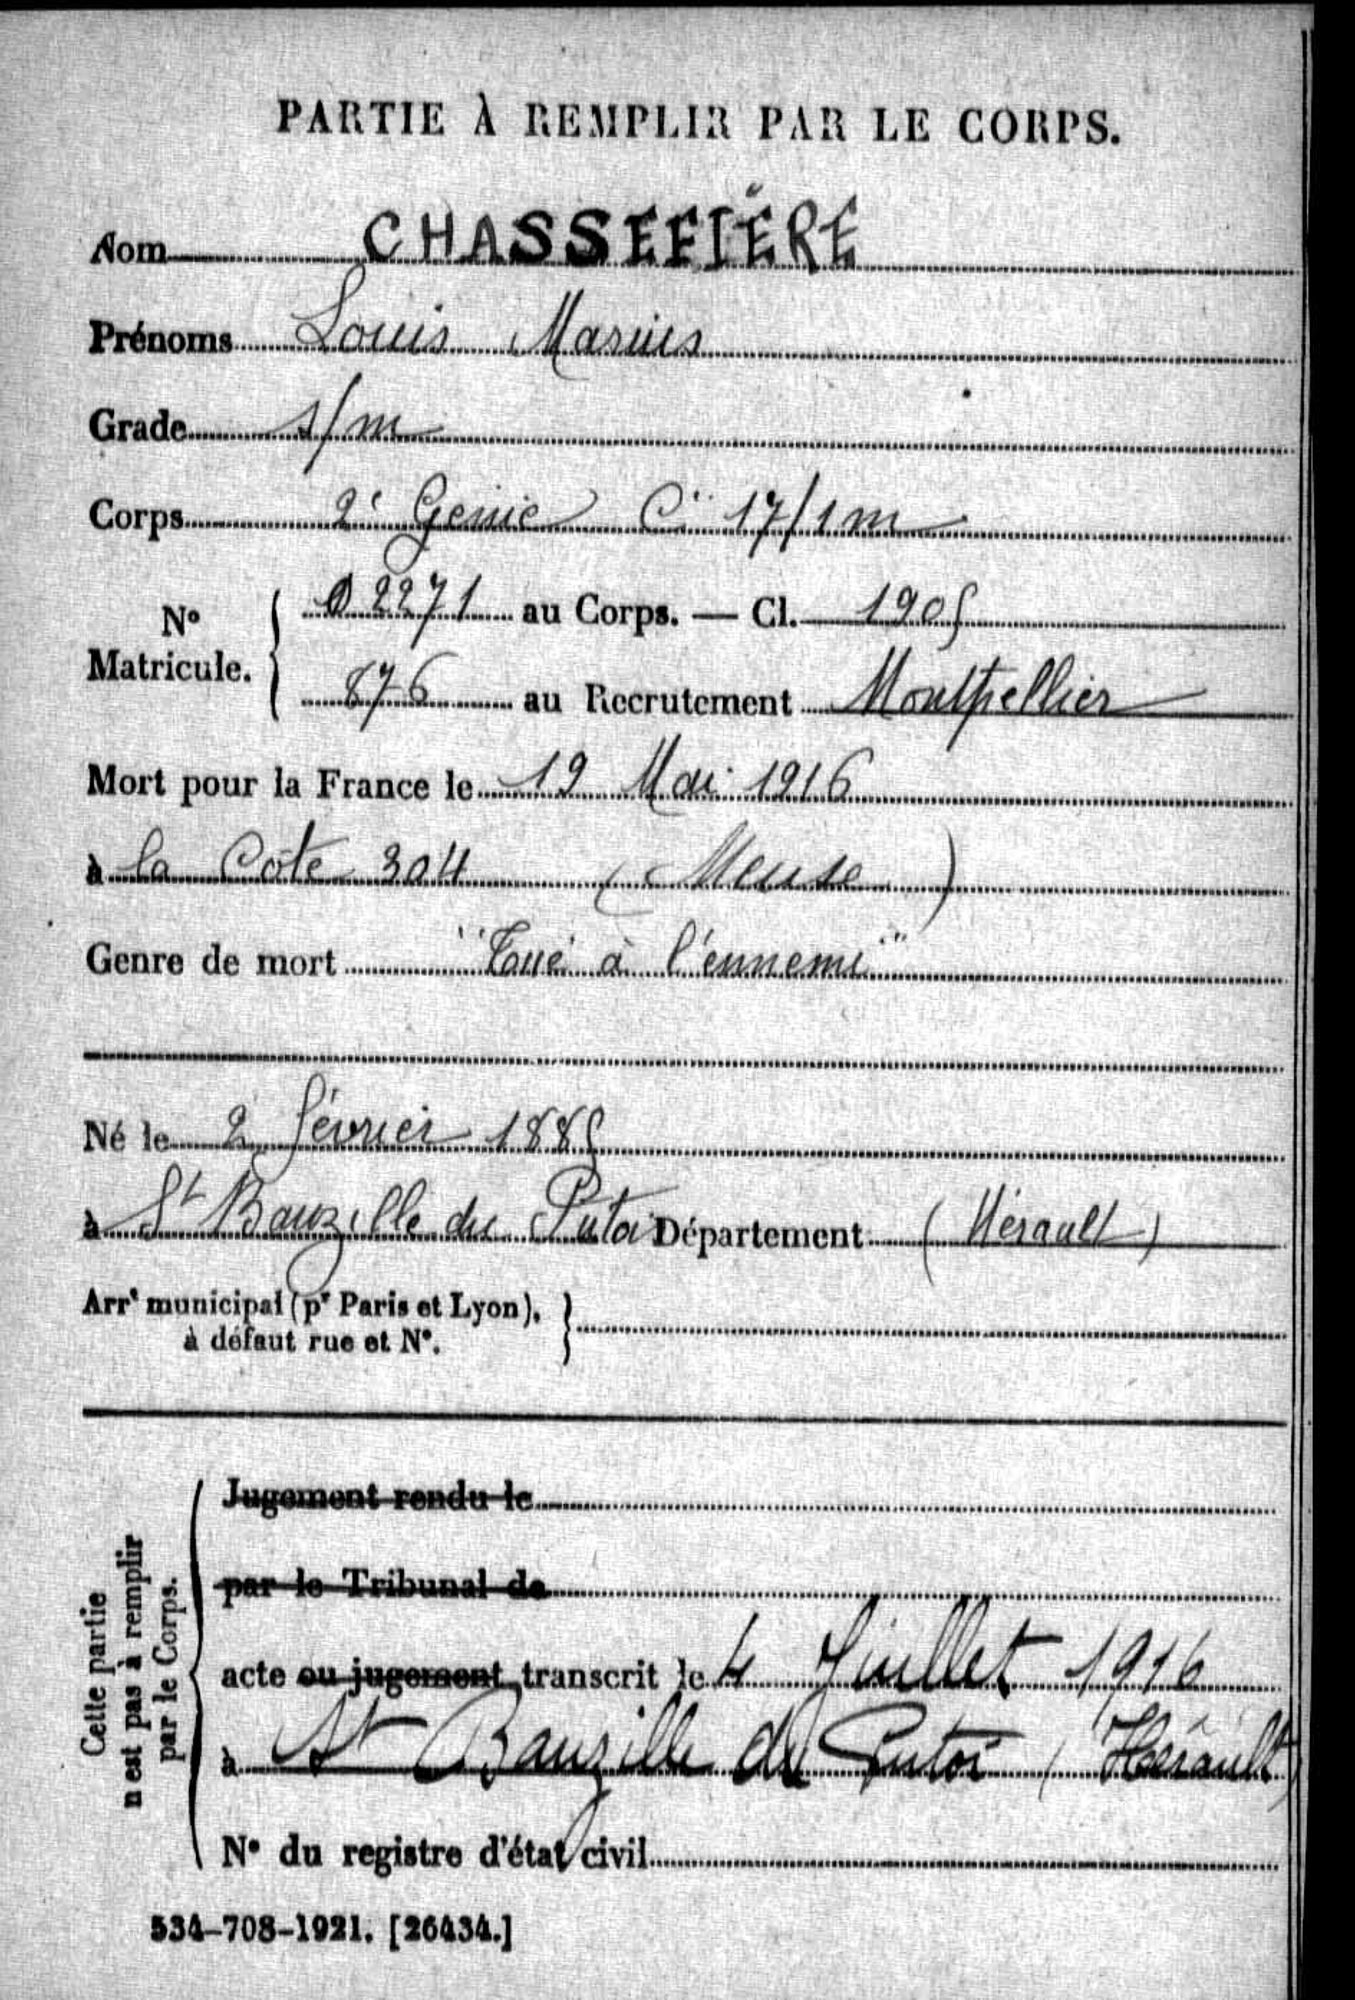 PARTIE À REMPLIR PAR LE CORPS.
Nom CHASSEFIÈRE
Prénoms Louis Marius
Grade s/m
Corps 2e Génie Cie 17/1 m
No Maticule. 2271 au Corps. — Cl. 1905
876 au Recrutement Montpellier
Mort pour la France le 19 Mai 1916
à la Côte 304 (Meuse)
Genre de mort "Tué à l'ennemi"
Né le 2 février 1885
à St Bauzille du Putoi Département (Hérault)
Arrt municipal (pr Paris et Lyon),
à défaut rue et No.
Cette partie
n'est pas à remplir
par le Corps.
Jugement rendu le
par le Tribunal de
acte ou jugement transcrit le 4 Juillet 1916
à St Bauzille du Putoi (Hérault)
No du registre d'état civil
534-708-1921. [26434.]